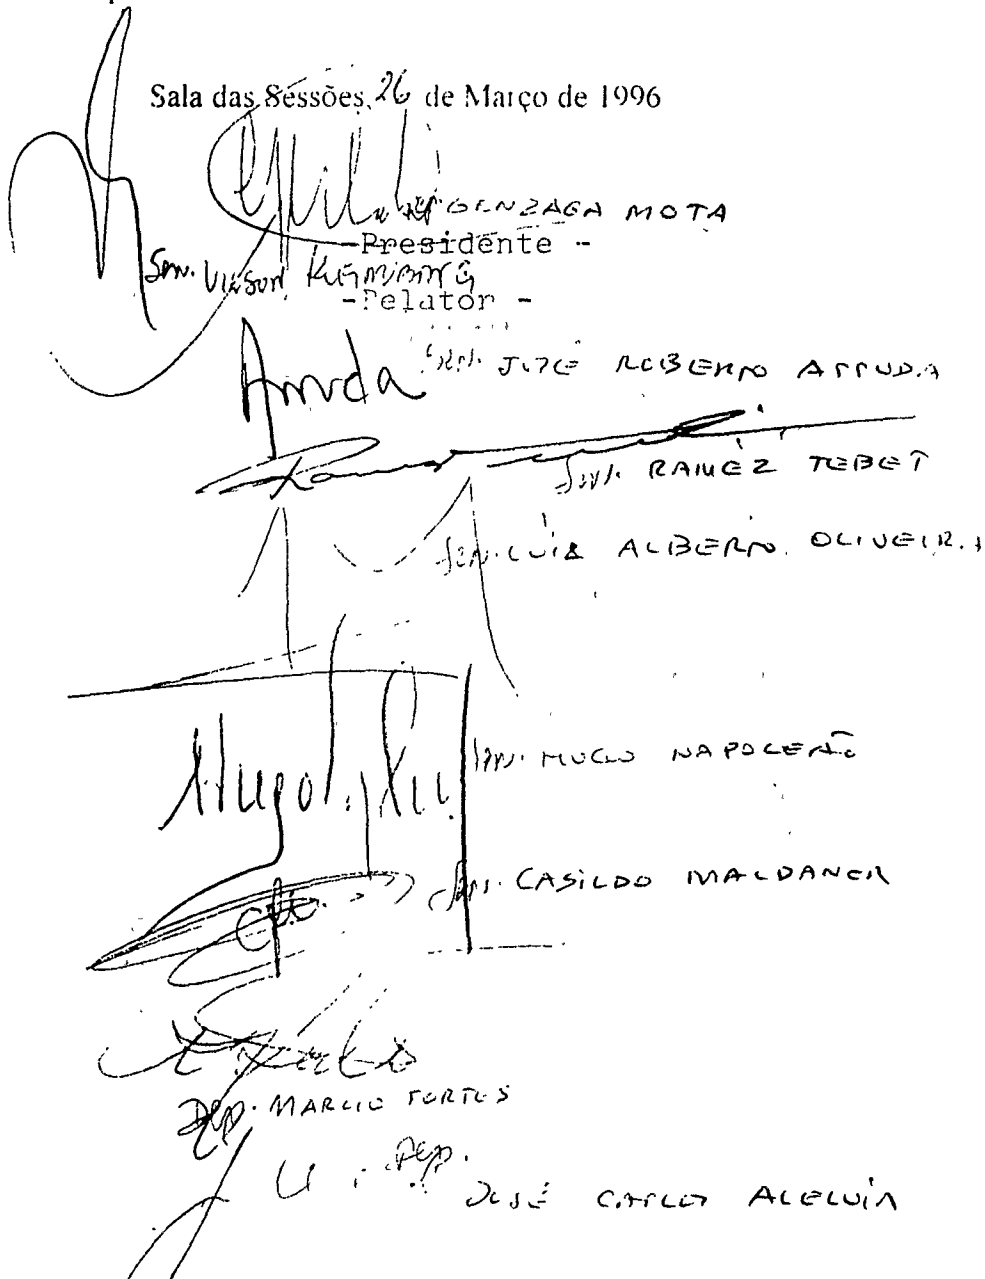 Sala das Sessões, 26 de Março de 1996
Dep. GONZAGA MOTA
-Presidente -
Sen. VILSON KLEINÜBING
-Relator -
Arruda Sen. JOSÉ ROBERTO ARRUDA
Sen. RAMEZ TEBET
Sen. LUÍS ALBERTO OLIVEIRA
Hugo Sen. HUGO NAPOLEÃO
Sen. CASILDO MALDANER
Dep. MARCIO FORTES
Dep.
JOSÉ CARLOS ALELUIA